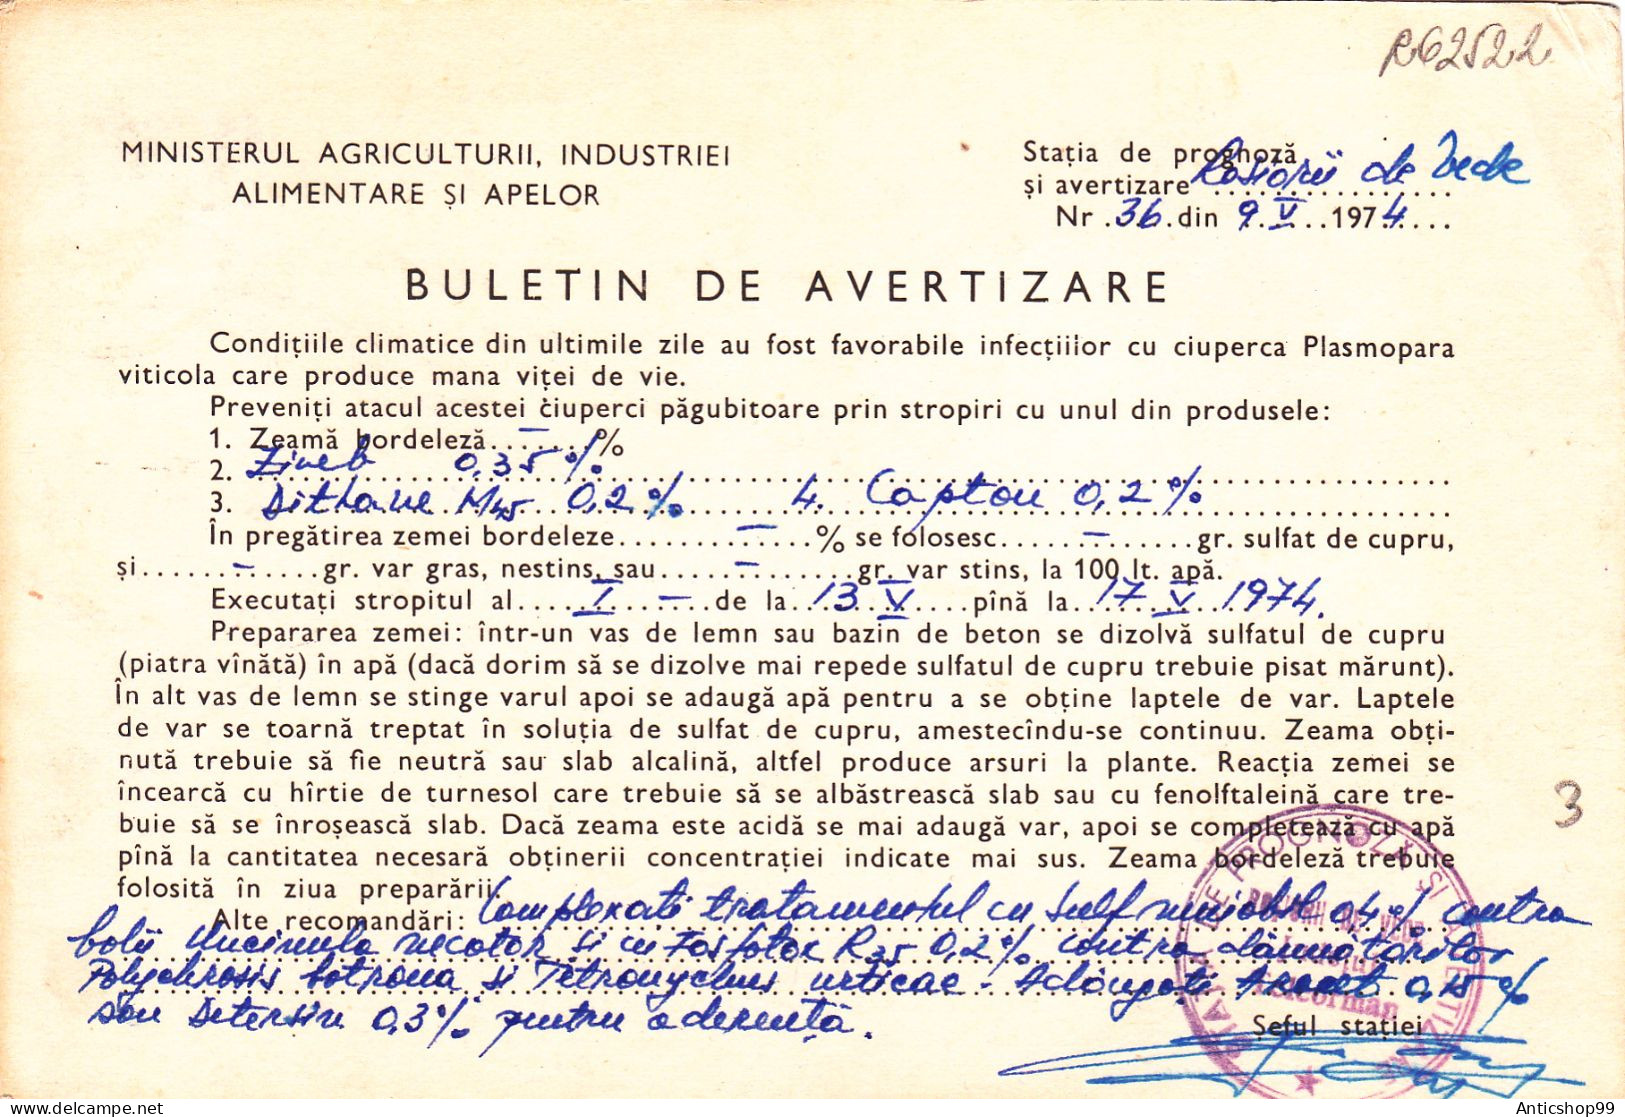 R62522
MINISTERUL AGRICULTURII, INDUSTRIEI
ALIMENTARE ȘI APELOR
Stația de prognoză
și avertizare Rosiorii de Vede
Nr. 36. din 9. V. 1974
BULETIN DE AVERTIZARE
Condițiile climatice din ultimile zile au fost favorabile infecțiilor cu ciuperca Plasmopara
viticola care produce mana viței de vie.
Preveniți atacul acestei ciuperci păgubitoare prin stropiri cu unul din produsele:
1. Zeamă bordeleză – %
2. Zineb 0,35 %
3. Dithane M45 0,2 % 4. Captan 0,2 %
În pregătirea zemei bordeleze – % se folosesc – gr. sulfat de cupru,
și – gr. var gras, nestins, sau – gr. var stins, la 100 lt. apă.
Executați stropitul al I – de la 13 V pînă la 17 V 1974.
Prepararea zemei: într-un vas de lemn sau bazin de beton se dizolvă sulfatul de cupru
(piatra vînătă) în apă (dacă dorim să se dizolve mai repede sulfatul de cupru trebuie pisat mărunt).
În alt vas de lemn se stinge varul apoi se adaugă apă pentru a se obține laptele de var. Laptele
de var se toarnă treptat în soluția de sulfat de cupru, amestecîndu-se continuu. Zeama obți-
nută trebuie să fie neutră sau slab alcalină, altfel produce arsuri la plante. Reacția zemei se
încearcă cu hîrtie de turnesol care trebuie să se albăstrească slab sau cu fenolftaleină care tre-
buie să se înroșească slab. Dacă zeama este acidă se mai adaugă var, apoi se completează cu apă
pînă la cantitatea necesară obținerii concentrației indicate mai sus. Zeama bordeleză trebuie
folosită în ziua preparării.
Alte recomandări: Completati tratamentul cu Sulf muiabil 0,4% contra
bolii Uncinula necator si cu Fosfotox R35 0,2% contra dăunătorilor
Polychrosis botrana si Tetranychus urticae - Adăugati Aracet 0,15 %
sau Detersin 0,3% pentru aderență.
Șeful stației
3
STAȚIA DE PROGNOZĂ ȘI AVERTIZARE
ROȘIORII DE VEDE
Județul
Teleorman
Anticshop99